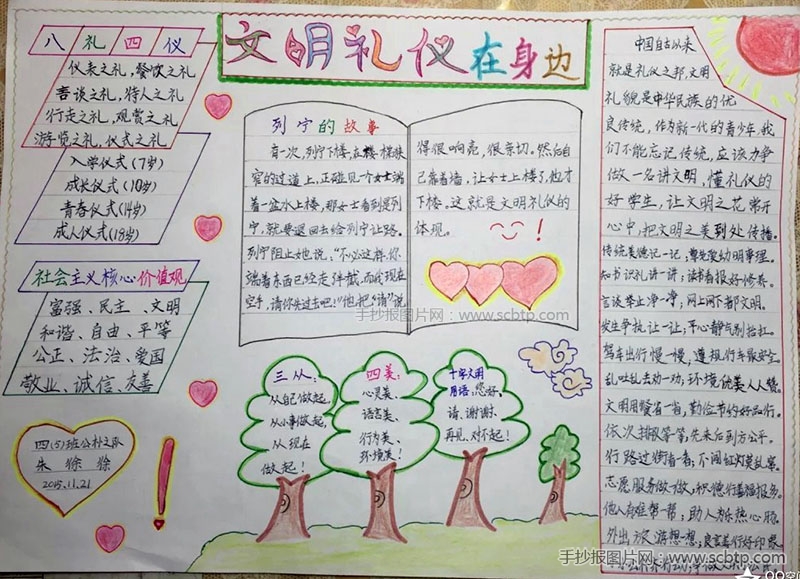 文明礼仪在身边
八礼四仪
仪表之礼,餐饮之礼
言谈之礼,待人之礼
行走之礼,观赏之礼
游览之礼,仪式之礼
入学仪式(7岁)
成长仪式(10岁)
青春仪式(14岁)
成人仪式(18岁)
社会主义核心价值观
富强、民主、文明
和谐、自由、平等
公正、法治、爱国
敬业、诚信、友善
四(5)班公朴之队
朱徐徐
2015.11.21
列宁的故事
有一次,列宁下楼,在楼梯狭
窄的过道上,正碰见一个女士端
着一盆水上楼,那女士看到是列
宁,就要退回去给列宁让路。
列宁阻止她说,“不必这样,你
端着东西已经走半截,而我现在
空手,请你先过去吧!”他把“请”说
得很响亮,很亲切。然后自
己靠着墙,让女士上楼了,他才
下楼。这就是文明礼仪的
体现。
三从:
从自己做起,
从小事做起,
从现在
做起!
四美:
心灵美、
语言美、
行为美、
环境美!
十字文明
用语:您好、
请、谢谢、
再见、对不起!
中国自古以来
就是礼仪之邦,文明
礼貌是中华民族的优
良传统,作为新一代的青少年,我
们不能忘记传统,应该力争
做一名讲文明,懂礼仪的
好学生,让文明之花常开
心中,把文明之美到处传播。
传统美德记一记;尊先爱幼明事理。
知书识礼讲一讲;读书看报好修养。
言谈举止净一净,网上网下都文明。
发生争执让一让;平心静气别抬杠。
驾车出行慢一慢,遵规行车最安全。
乱吐乱丢劝一劝;环境优美人人赞。
文明用餐省一省,勤俭节约好品行。
依次排队等一等,先来后到方公平。
行路过街看一看;不闯红灯莫乱穿。
志愿服务做一做;积德行善福报多。
他人有难帮一帮;助人为乐热心肠。
外出旅游想一想;良言善行好印象。
手抄报图片网:www.scbtp.com
手抄报图片网:www.scbtp.com